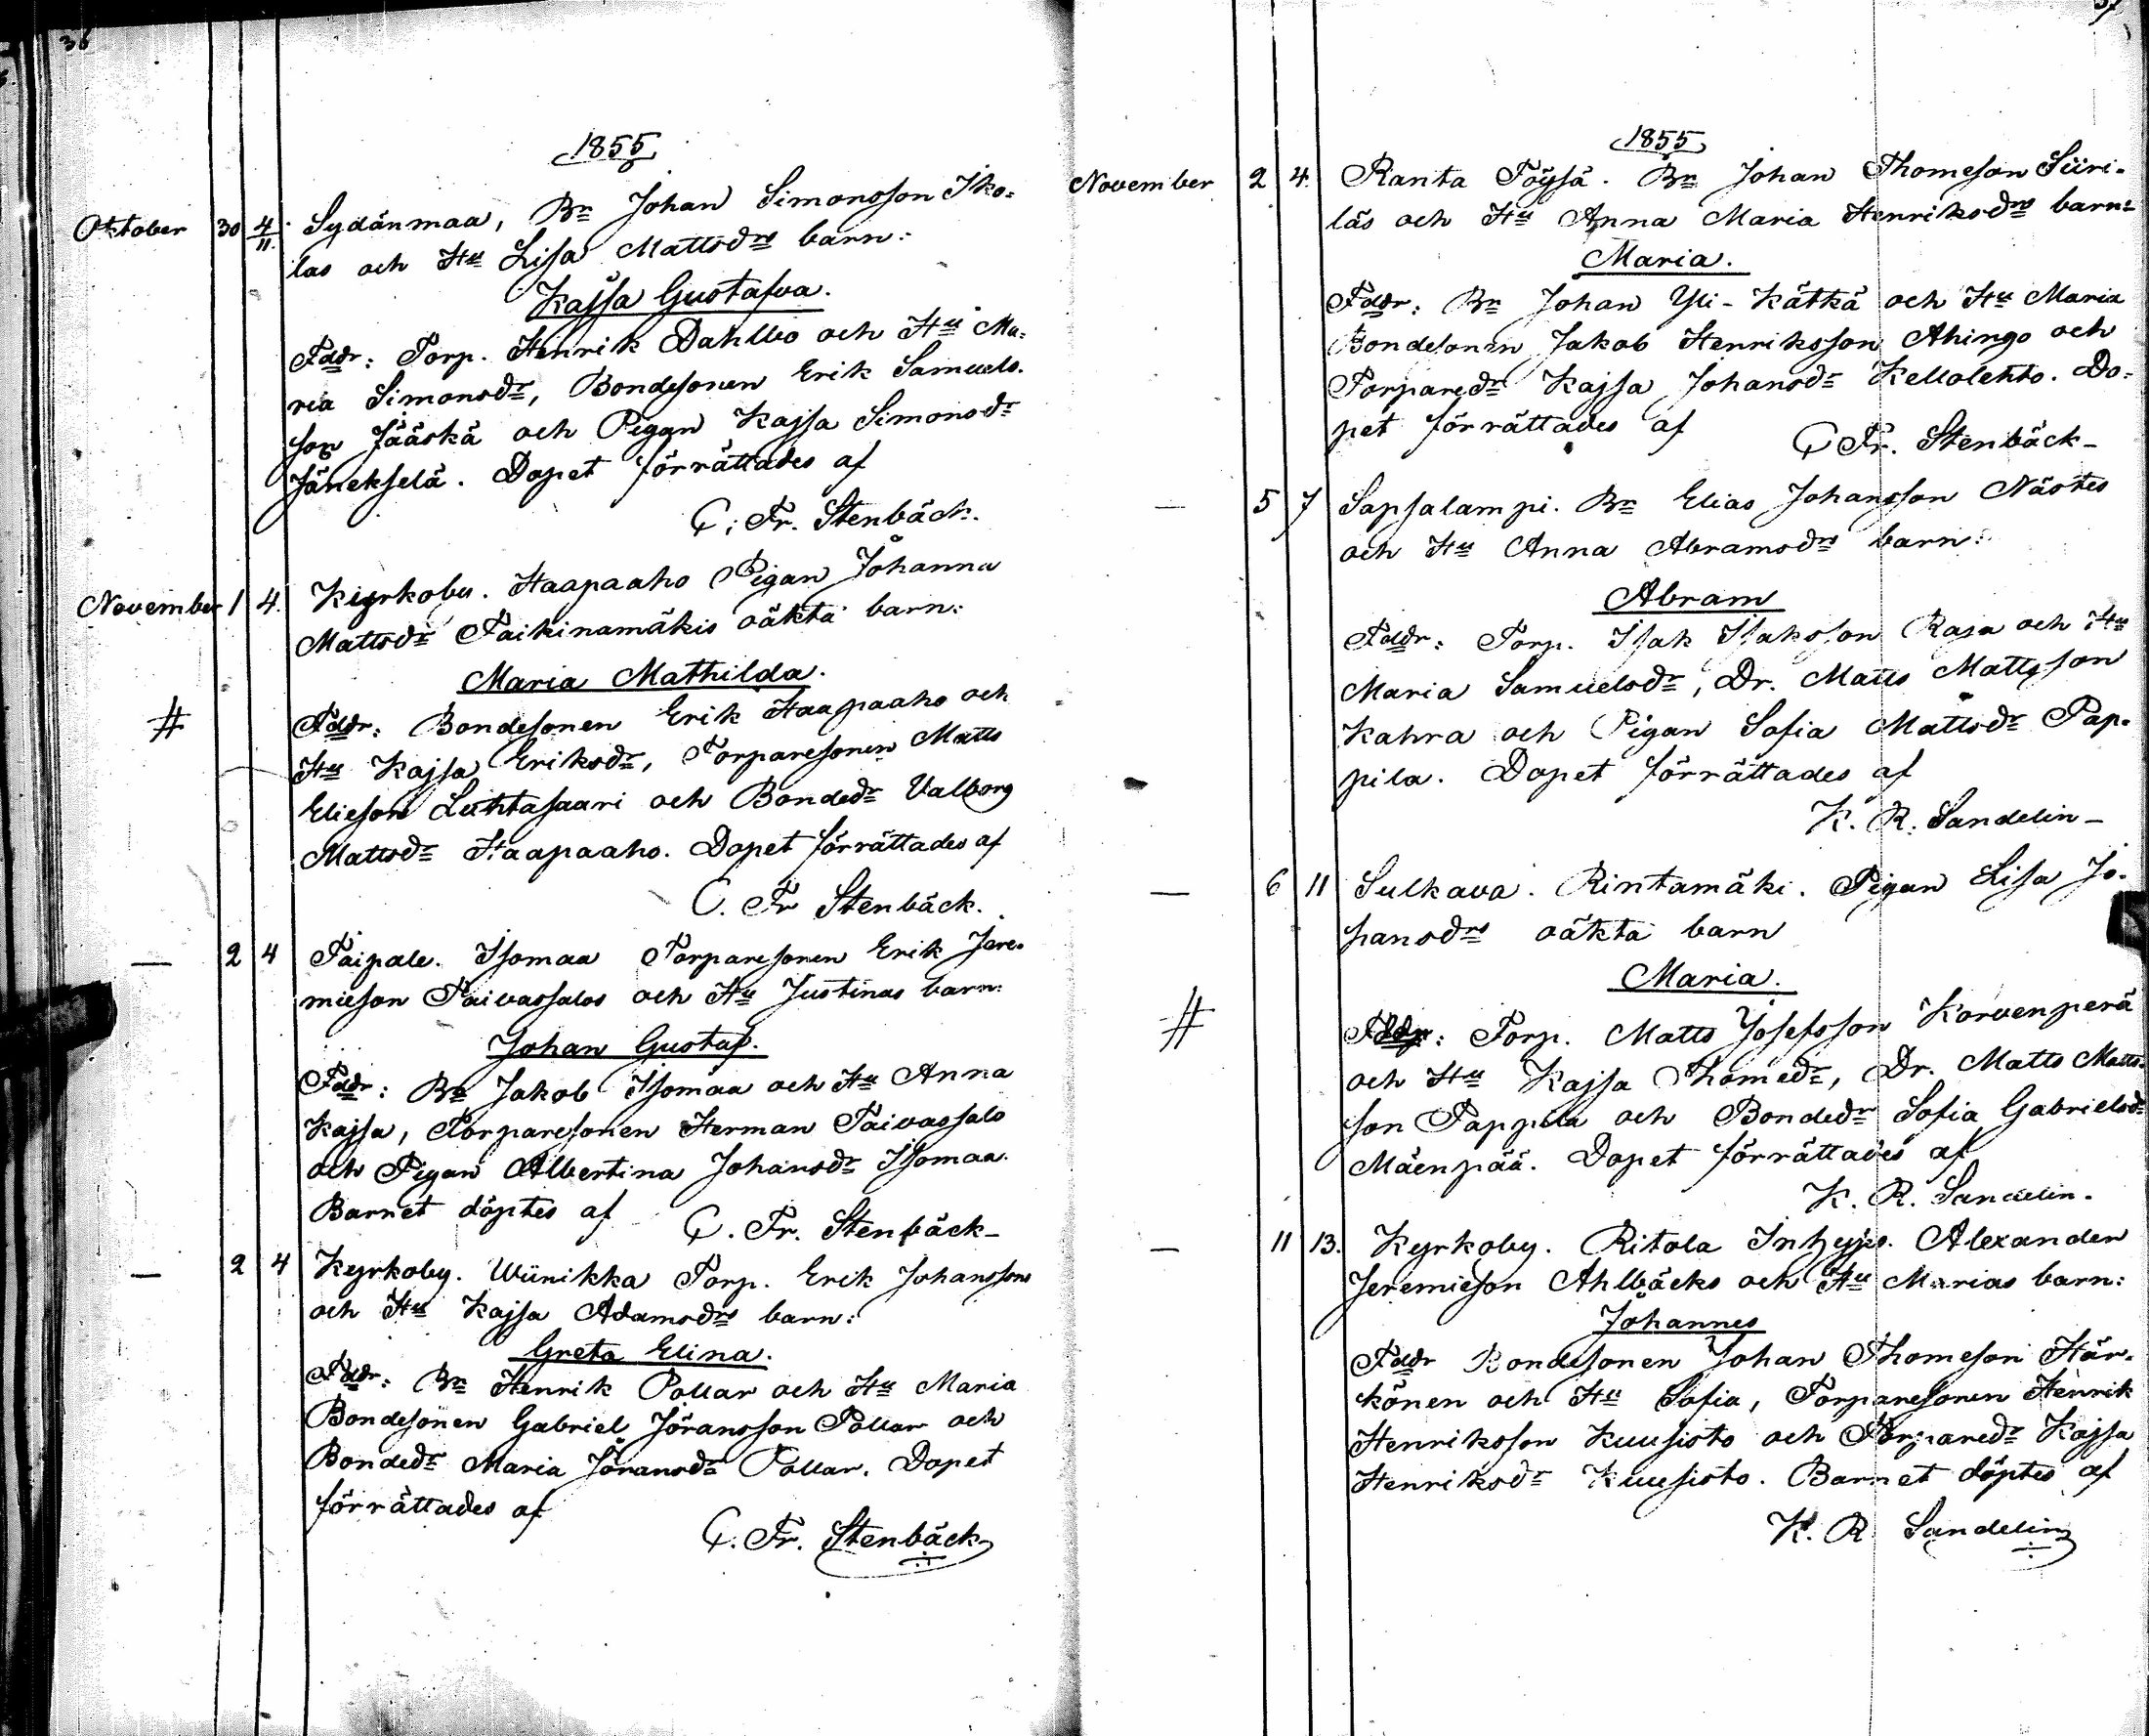 36
1855
Oktober 30 4/11. Sydänmaa, Bn Johan Simonsson Iko-
las och Hu Lisa Mattsdrs barn:
Kajsa Gustafva.
Faddr: Torp. Henrik Dahlbo och Hu Ma-
ria Simonsdr, Bondesonen Erik Samuels-
son Jääskä och Pigan Kajsa Simonsdr
Jänekselä. Dopet förrättades af
C. Fr. Stenbäck.
November 1 4. Kyrkoby. Haapaaho Pigan Johanna
Mattsdr Taikinamäkis oäkta barn:
Maria Mathilda.
# Faddr: Bondesonen Erik Haapaaho och
Hu Kajsa Eriksdr, Torparesonen Matts
Elieson Luhtasaari och Bondedr Valborg
Mattsdr Haapaaho. Dopet förrättades af
C. Fr Stenbäck.
— 2 4 Taipale. Isomaa Torparesonen Erik Jere-
mieson Taivassalos och Hu Justinas barn:
Johan Gustaf.
Faddr: Bn Jakob Isomaa och Hu Anna
Kajsa, Torparesonen Herman Taivassalo
och Pigan Albertina Johansdr Isomaa.
Barnet döptes af C. Fr. Stenbäck-
— 2 4 Kyrkoby. Wiinikka Torp. Erik Johanssons
och Hu Kajsa Adamsdrs barn:
Greta Elina.
Faddr: Bn Henrik Pollar och Hu Maria
Bondesonen Gabriel Jöransson Pollar och
Bondedr Maria Jöransdr Pollar. Dopet
förrättades af
C. Fr. Stenbäck
37
1855
November 2 4. Ranta Töysä. Bn Johan Thomeson Siiri-
läs och Hu Anna Maria Henriksdrs barn:
Maria.
Faddr: Bn Johan Yli-Kätkä och Hu Maria
Bondesonen Jakob Henriksson Ahingo och
Torparedr Kajsa Johansdr Kellolehto. Do-
pet förrättades af C Fr. Stenbäck-
— 5 7 Sapsalampi. Bn Elias Johansson Nästes
och Hu Anna Abramsdrs barn:
Abram
Faddr: Torp. Isak Isaksson Rasa och Hu
Maria Samuelsdr, Dr. Matts Mattsson
Kahra och Pigan Sofia Mattsdr Pap-
pila. Dopet förrättades af
K. R. Sandelin-
— 6 11 Sulkava. Rintamäki. Pigan Lisa Jo-
hansdrs oäkta barn
Maria.
# Faddr: Torp. Matts Josefsson Korvenperä
och Hu Kajsa Thomedr, Dr. Matts Matts-
son Pappila och Bondedr Sofia Gabrielsdr
Mäenpää. Dopet förrättades af
K. R. Sandelin.
— 11 13. Kyrkoby. Ritola Inhyss. Alexander
Jeremieson Ahlbäcks och Hu Marias barn:
Johannes
Faddr Bondesonen Johan Thomeson Här-
könen och Hu Sofia, Torparesonen Henrik
Henriksson Kuusisto och Torparedr Kajsa
Henriksdr Kuusisto. Barnet döptes af
K. R Sandelin